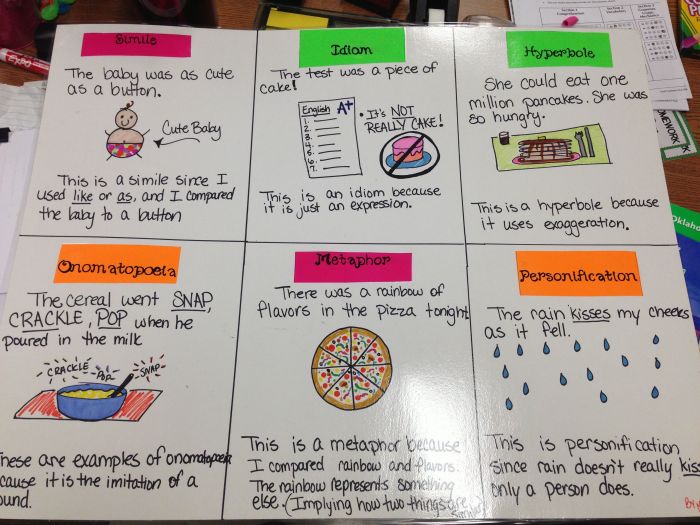 Simile
The baby was as cute
as a button.
Cute Baby
This is a simile since I
used like or as, and I compared
the baby to a button
Idiom
The test was a piece of
cake!
English A+
1.
2.
3.
4.
5.
6.
7.
• It's NOT
REALLY CAKE!
This is an idiom because
it is just an expression.
Hyperbole
She could eat one
million pancakes. She was
so hungry.
This is a hyperbole because
it uses exaggeration.
Onomatopoeia
The cereal went SNAP,
CRACKLE, POP when he
poured in the milk
CRACKLE POP SNAP
These are examples of onomatopoeia
cause it is the imitation of a
ound.
Metaphor
There was a rainbow of
flavors in the pizza tonight
This is a metaphor because
I compared rainbow and flavors.
The rainbow represents something
else. (Implying how two things are
Personification
The rain kisses my cheeks
as it fell.
This is personification
since rain doesn't really kiss
only a person does.
EXPO
HOMEWORK
Oklaho